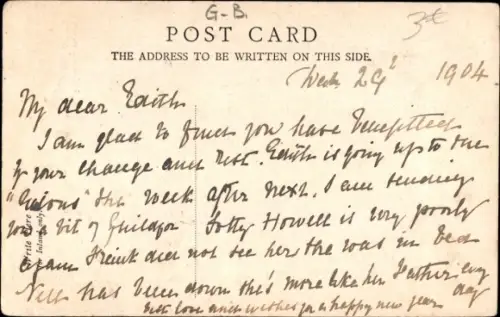 G-B.
3d
POST CARD
THE ADDRESS TO BE WRITTEN ON THIS SIDE.
29 1904.
My dear Edith
I am glad to find you have benefitted
by your change and rest. Edith is going up to the
"Nixons" the week after next. I am sending
you a bit of Guildford Totty Howell is very poorly
again Frank did not see her she was in bed
Nell has been down she's more like her Father every
day
best love and wishes for a happy new year